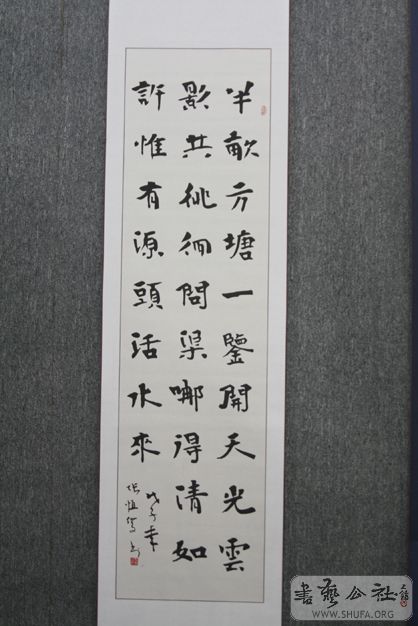 半畝方塘一鑒開天光雲
影共徘徊問渠哪得清如
許惟有源頭活水來
戊子年
書藝公社
WWW.SHUFA.ORG